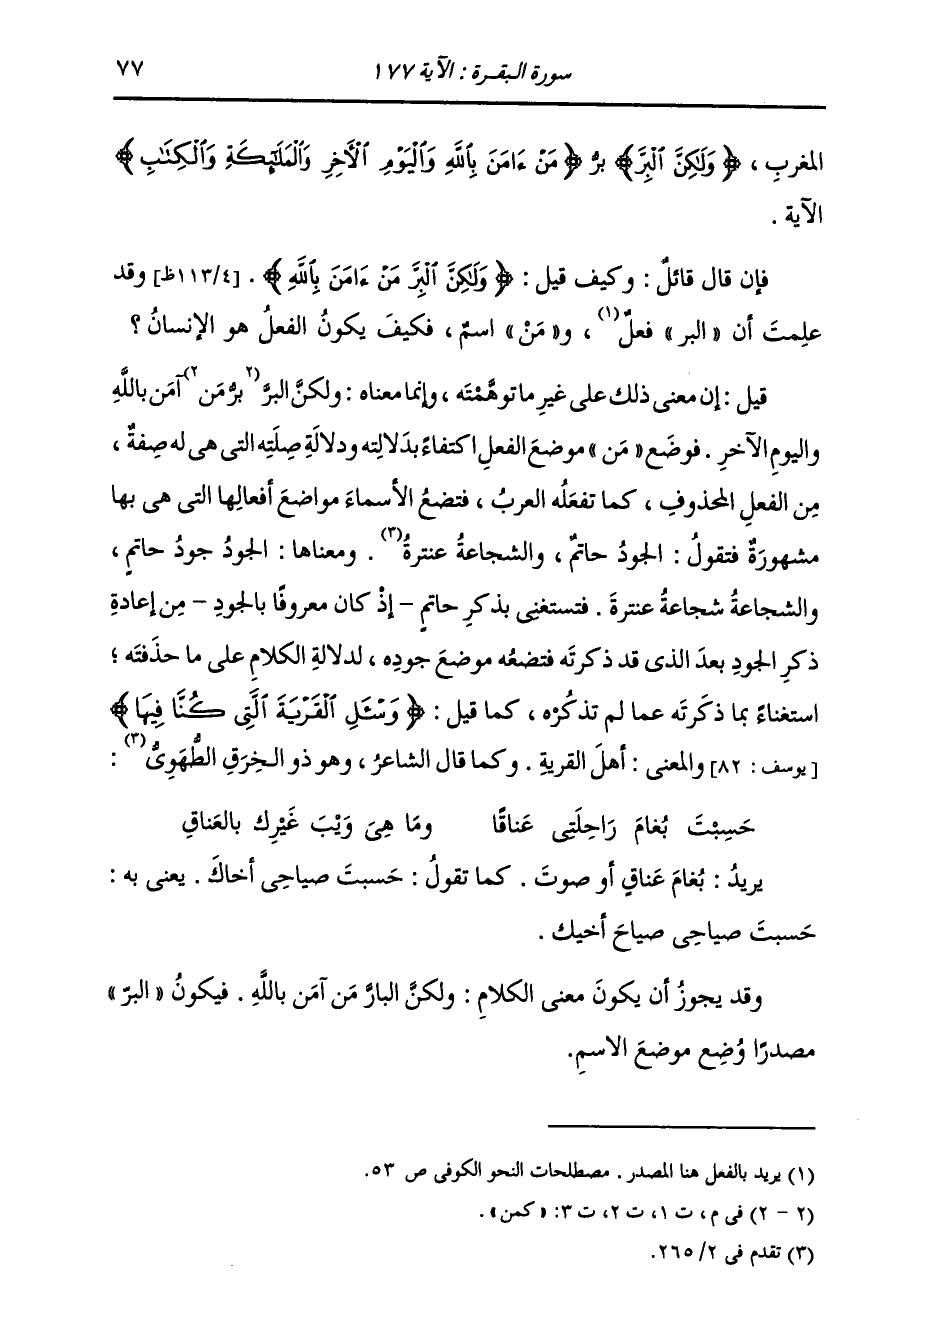 سورة البقرة : الآية ١٧٧ ٧٧
المغربِ ، ﴿ وَلَٰكِنَّ ٱلْبِرَّ ﴾ بِرُّ ﴿ مَنْ ءَامَنَ بِٱللَّهِ وَٱلْيَوْمِ ٱلْأَخِرِ وَٱلْمَلَٰٓئِكَةِ وَٱلْكِتَٰبِ ﴾
الآية .
فإن قال قائلٌ : وكيف قيل : ﴿ وَلَٰكِنَّ ٱلْبِرَّ مَنْ ءَامَنَ بِٱللَّهِ ﴾ . [١١٣/٤ظ] وقد
علِمتَ أن « البر » فعلٌ(١) ، و« مَنْ » اسمٌ ، فكيفَ يكونُ الفعلُ هو الإنسانُ ؟
قيل : إن معنى ذلك على غيرِ ما توهَّمْتَه ، وإنما معناه : ولكنَّ البرَّ (٢ برُّ مَن ٢) آمَن باللَّهِ
واليومِ الآخرِ . فوضَع « مَن » موضعَ الفعلِ اكتفاءً بدَلالتِه ودلالةِ صِلَتِه التى هى له صفةٌ ،
مِن الفعلِ المحذوفِ ، كما تفعَلُه العربُ ، فتضعُ الأسماءَ مواضعَ أفعالِها التى هى بها
مشهورَةٌ فتقولُ : الجودُ حاتمٌ ، والشجاعةُ عنترةُ(٣) . ومعناها : الجودُ جودُ حاتمٍ ،
والشجاعةُ شجاعةُ عنترةَ . فتستغنِى بذكرِ حاتمٍ – إذْ كان معروفًا بالجودِ – مِن إعادةِ
ذكرِ الجودِ بعدَ الذى قد ذكرتَه فتضعُه موضعَ جودِه ، لدلالةِ الكلامِ على ما حذَفتَه ؛
استغناءً بما ذكَرتَه عما لم تذكُرْه ، كما قيل : ﴿ وَسْـَٔلِ ٱلْقَرْيَةَ ٱلَّتِى كُنَّا فِيهَا ﴾
[ يوسف : ٨٢] والمعنى : أهلَ القريةِ . وكما قال الشاعرُ ، وهو ذو الخِرَقِ الطُّهَوِىُّ(٣) :
حَسِبْتَ بُغامَ رَاحِلَتِى عَناقًا ومَا هِىَ وَيْبَ غَيْرِك بالعَناقِ
يريدُ : بُغامَ عَناقٍ أو صوتَ . كما تقولُ : حَسبتَ صياحِى أخاكَ . يعنى به :
حَسبتَ صياحِى صياحَ أخيك .
وقد يجوزُ أن يكونَ معنى الكلامِ : ولكنَّ البارَّ مَن آمَن باللَّهِ . فيكونُ « البرّ »
مصدرًا وُضِع موضعَ الاسمِ.
(١) يريد بالفعل هنا المصدر . مصطلحات النحو الكوفى ص ٥٣.
(٢ – ٢) فى م، ت ١، ت ٢، ت ٣: « كمن » .
(٣) تقدم فى ٢/ ٢٦٥.